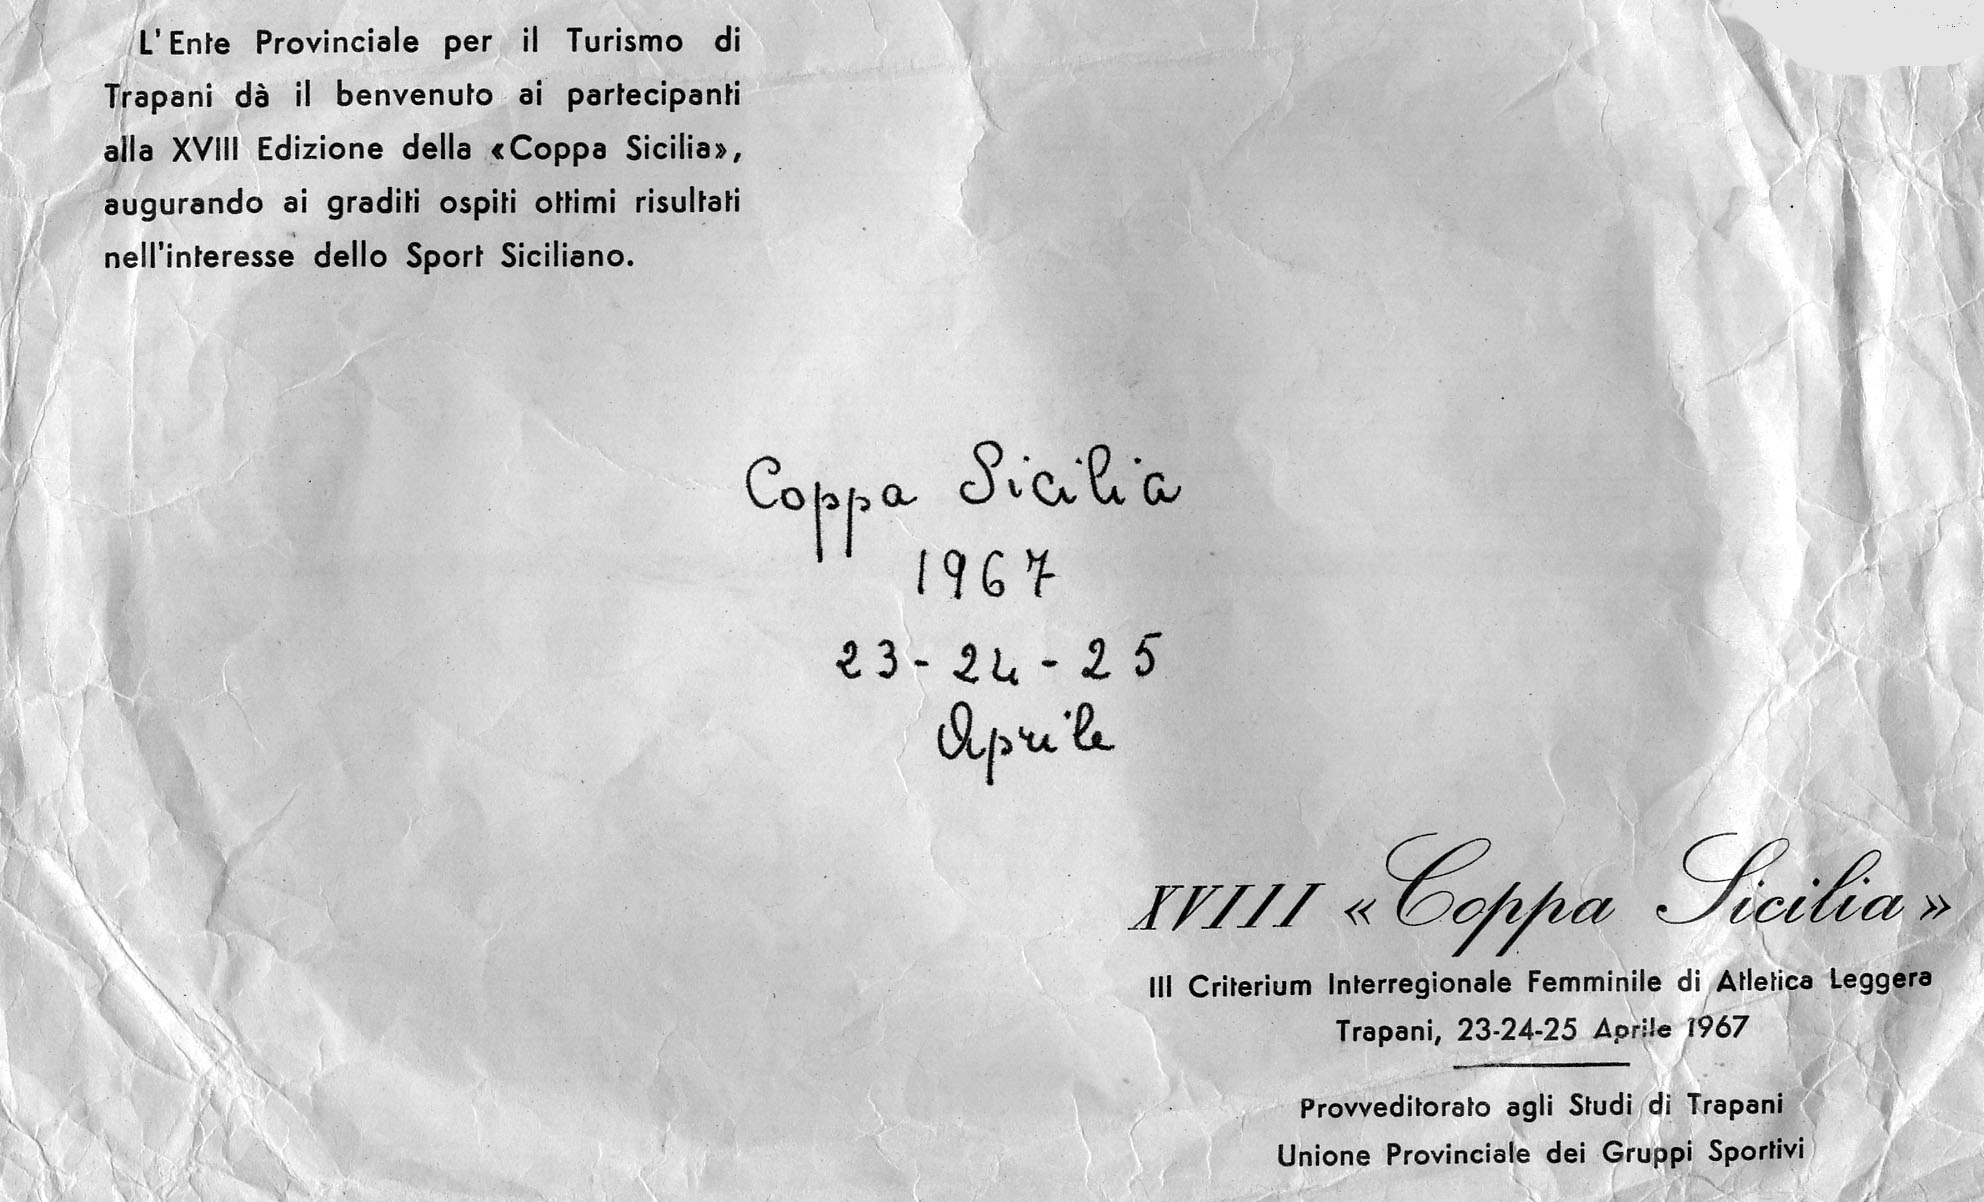 L'Ente Provinciale per il Turismo di
Trapani dà il benvenuto ai partecipanti
alla XVIII Edizione della «Coppa Sicilia»,
augurando ai graditi ospiti ottimi risultati
nell'interesse dello Sport Siciliano.
Coppa Sicilia
1967
23-24-25
Aprile
XVIII «Coppa Sicilia»
III Criterium Interregionale Femminile di Atletica Leggera
Trapani, 23-24-25 Aprile 1967
Provveditorato agli Studi di Trapani
Unione Provinciale dei Gruppi Sportivi